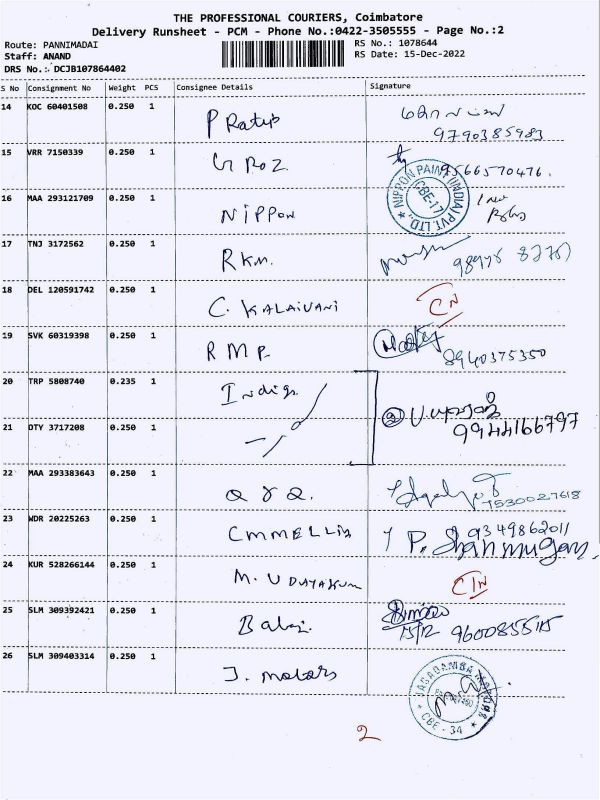 THE PROFESSIONAL COURIERS, Coimbatore
Delivery Runsheet - PCM - Phone No.:0422-3505555 - Page No.:2
Route: PANNIMADAI
RS No.: 1078644
Staff: ANAND
RS Date: 15-Dec-2022
DRS No.: DCJB107864402
S No Consignment No Weight PCS Consignee Details Signature
14 KOC 60401508 0.250 1 P Ratup
9790385983
15 VRR 7150339 0.250 1 G ROZ 9566570476.
16 MAA 293121709 0.250 1 NIPPON
NIPPON PAINT (INDIA) PVT. LTD.,
CBE-17
17 TNJ 3172562 0.250 1 RKM.
18 DEL 120591742 0.250 1 C. KALAIVANI CN
19 SVK 60319398 0.250 1 RMP 8940375350
20 TRP 5808740 0.235 1 Indigo
21 OTY 3717208 0.250 1 9944166797
22 MAA 293383643 0.250 1 7530027618
23 WDR 20225263 0.250 1 CMMELLIS 9349862011
P. Shanmugam
24 KUR 528266144 0.250 1 M. UDAYAKUM CIN
25 SLM 309392421 0.250 1 Balaji 15/12 9600855115
26 SLM 309403314 0.250 1 J. motors
JAGADAMBA MOTORS
CBE - 34
2